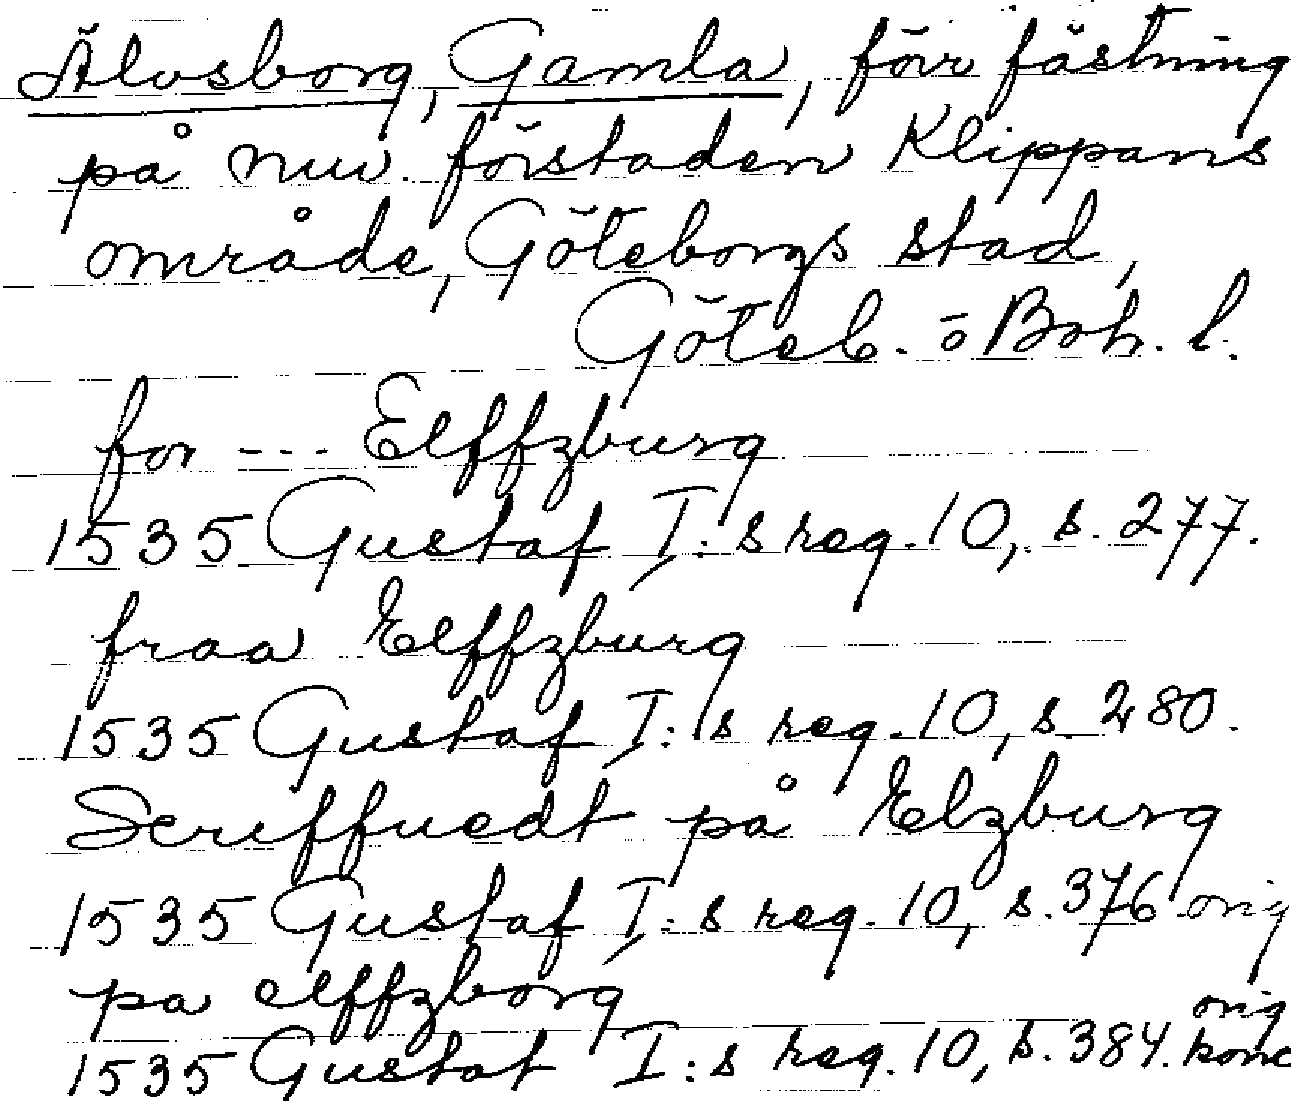 Älvsborg, Gamla, förr fästning
på nuv. förstaden Klippans
område, Göteborgs stad,
Göteb. o Boh. l.
for --- Elffzburg
1535 Gustaf I:s reg. 10, s. 277.
fraa Elffzburg
1535 Gustaf I:s reg. 10, s. 280.
Scriffuedt på Elzburg
1535 Gustaf I:s reg. 10, s. 376 orig
pa elffzborg
orig
1535 Gustaf I:s reg. 10, s. 384. konc